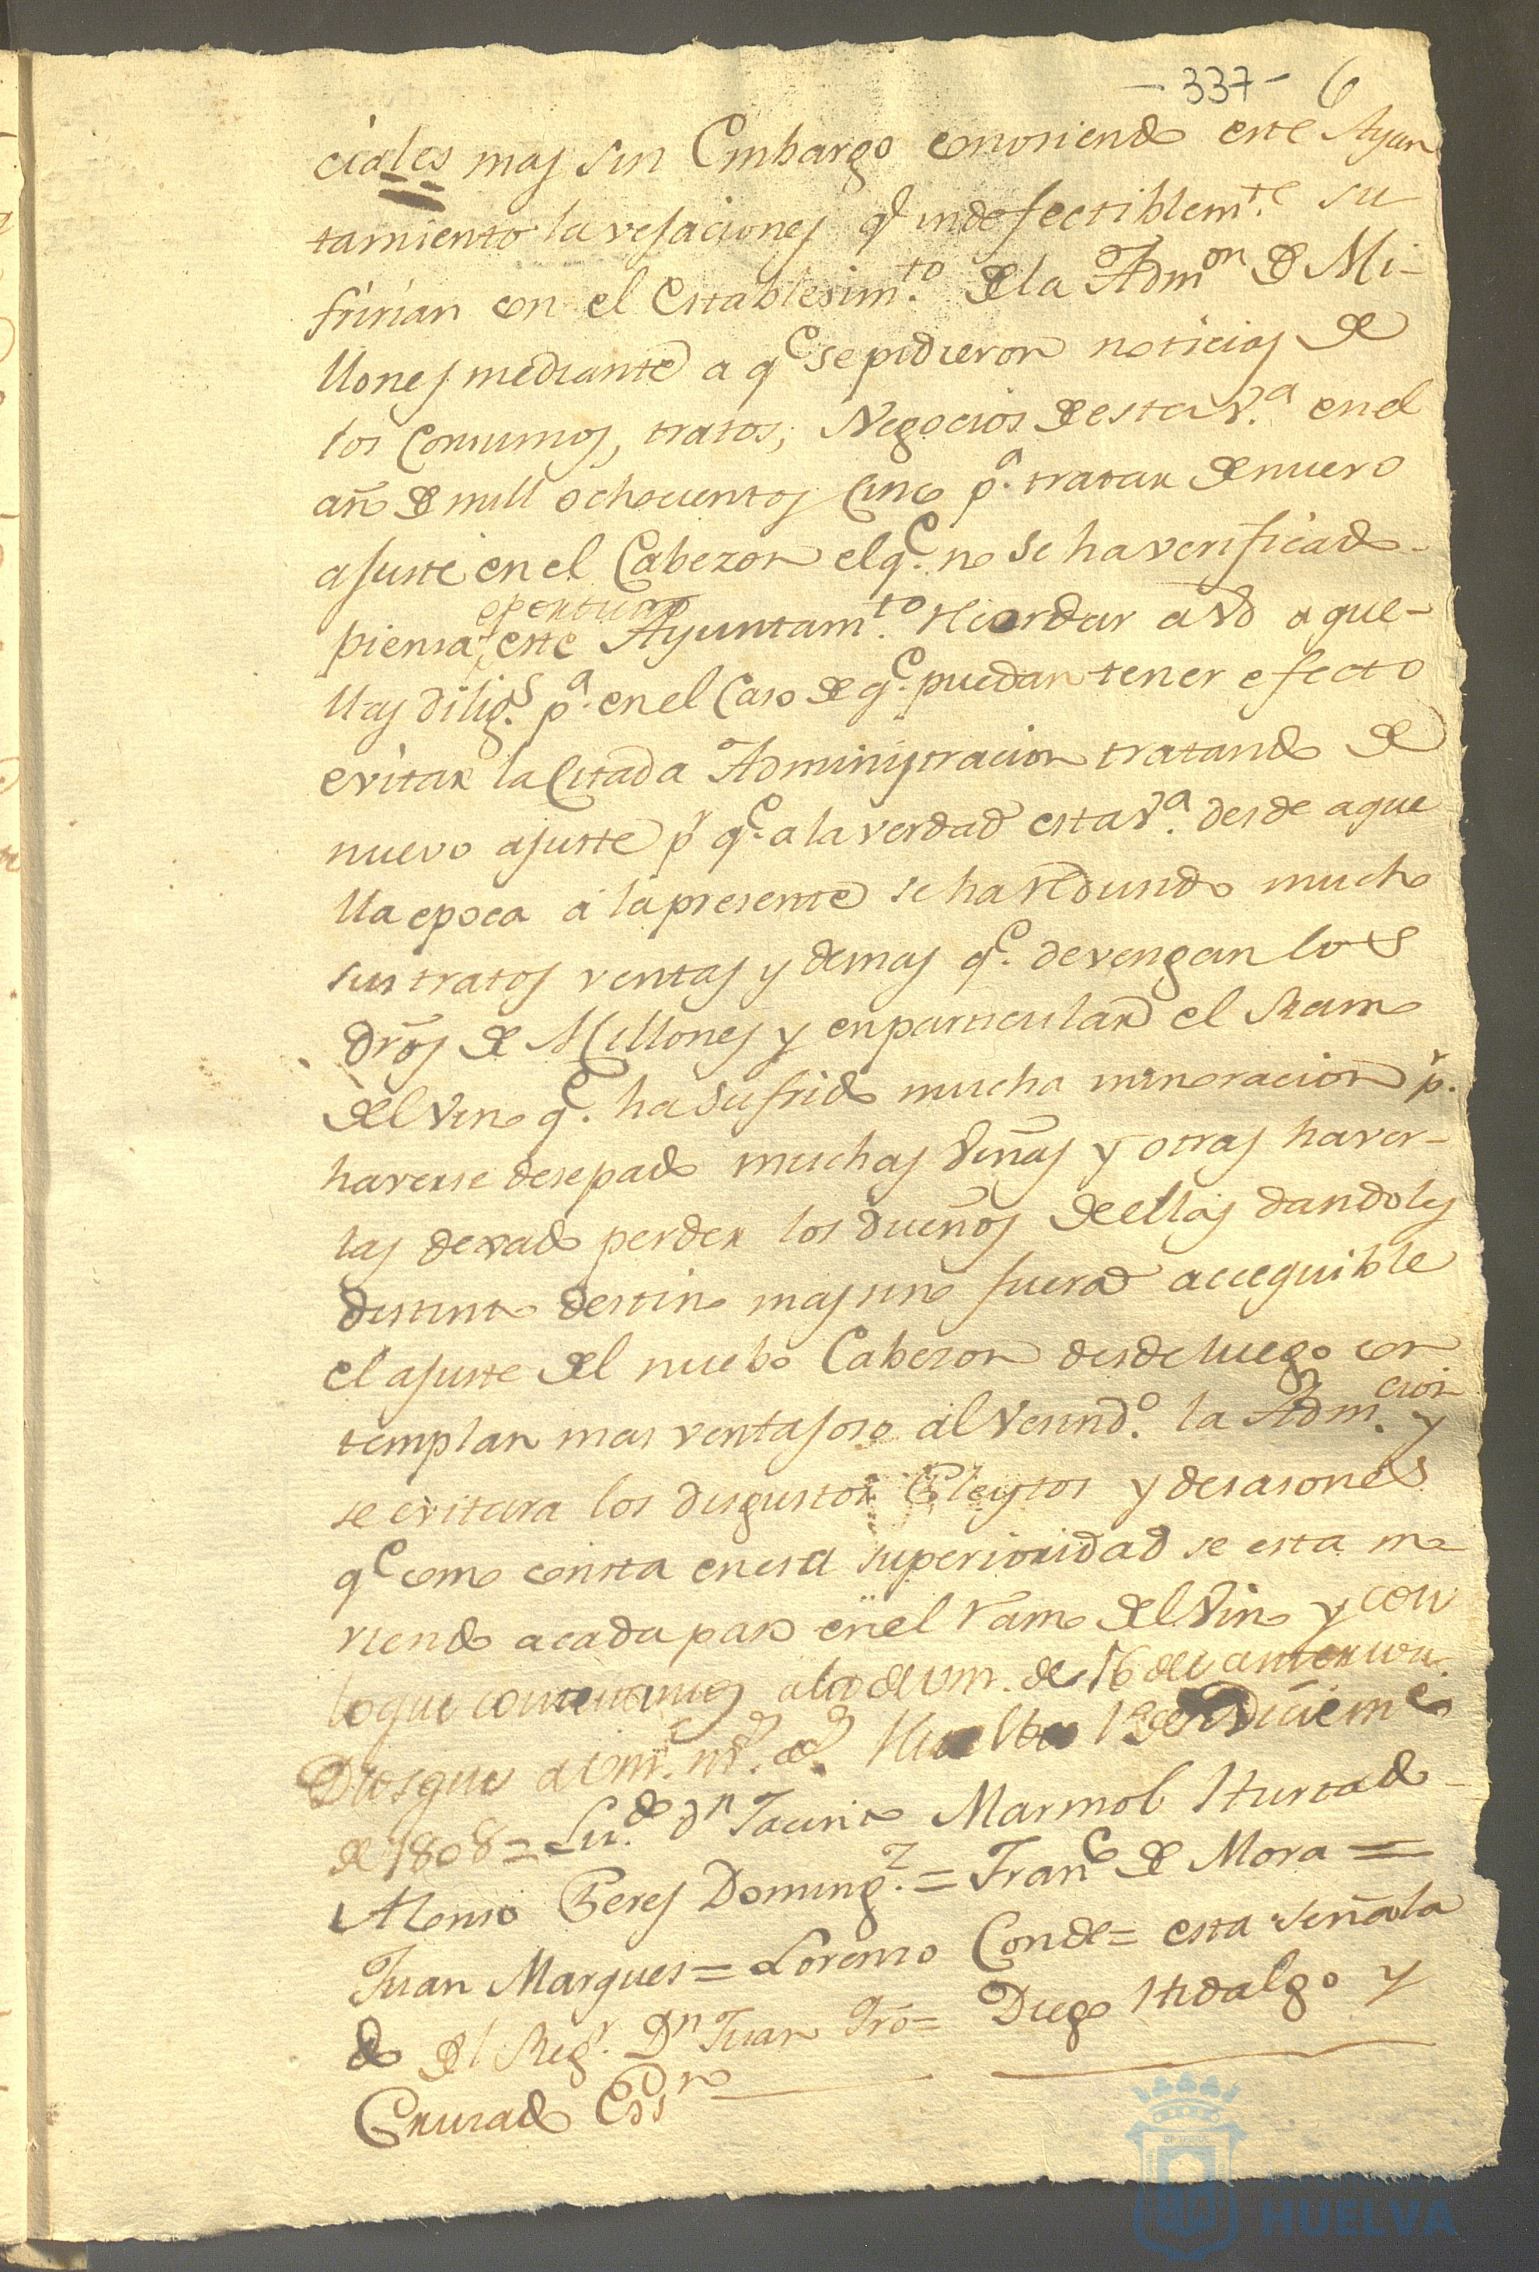 - 337 - 6
ciales mas sin Embargo conosiendo este Ayun
tamiento la vejaciones q.e indefectiblem.te su
fririan con el Establesim.to de la Adm.on de Mi-
llones mediante a q.e se pidieron noticias de
los Consumos, tratos, Negocios de esta V.a en el
año de mill ochocientos cinco p.a tratar de nuevo
ajuste en el Cabezon el q.e no se ha verificado-
piensa oportuno este Ayuntam.to recordar a Vd aque-
llas dilig.s p.a en el Caso de q.e puedan tener efecto
evitar la Citada Administracion tratando de
nuevo ajuste p.r q.e a la verdad esta V.a desde aque
lla epoca a la presente se ha redusido mucho
sus tratos ventas y demas q.e devengan los
dros de Millones y en particular el Ramo
del Vino q.e ha sufrido mucha minoracion p.r
haverse desepado muchas Viñas y otras haver-
las dexado perder los dueños de ellas dandoles
distinto destino mas si no fuera accequible
el ajuste del nuebo Cabezon desde luego con
templan mas ventajoso al Vesind.o la Adm.cion y
se evitara los disgustos Pleytos y desasones
q.e como consta en esa superioridad se esta mo
viendo a cada paso en el ramo del Vino y con
lo que contextamos a la de Vm. de 16 del anterior.
Dios gue a Vm. m.s a.s Huelva 1 de Diciembre
de 1808 = Lic.do Dn Jacinto Marmol Hurtado-
Alonso Peres Doming.z = Fran.co de Mora =
Juan Marques = Lorenso Conde = esta señala
do del Reg.r Dn Juan Tró = Diego Hidalgo y
Crusado Ess.no
HUELVA